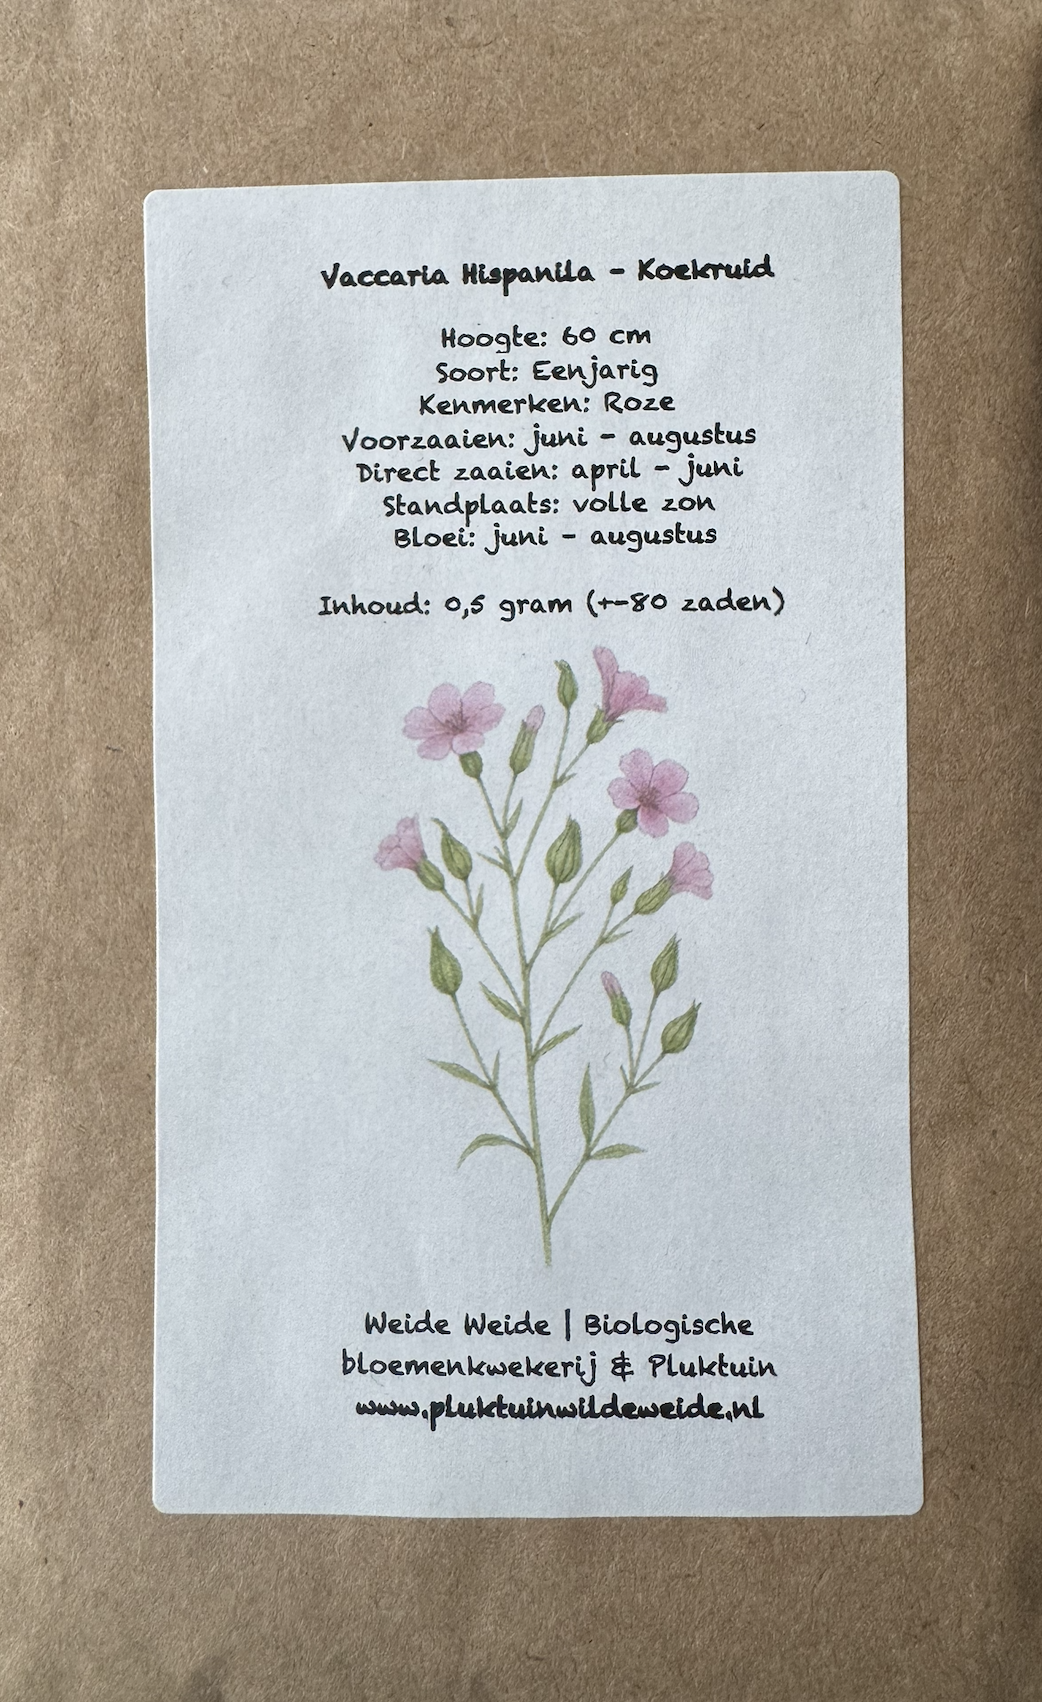 Vaccaria Hispanila - Koekruid
Hoogte: 60 cm
Soort: Eenjarig
Kenmerken: Roze
Voorzaaien: juni - augustus
Direct zaaien: april - juni
Standplaats: volle zon
Bloei: juni - augustus
Inhoud: 0,5 gram (+-80 zaden)
Weide Weide | Biologische
bloemenkwekerij & Pluktuin
www.pluktuinwildeweide.nl